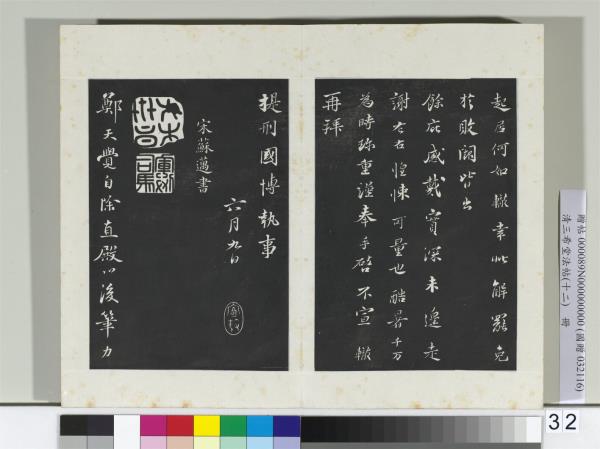 起居何如轍幸此解罷免
於敗闕皆出
餘庇感戴實深未遑走
謝左右惶悚可量也酷暑千万
為時珍重謹奉手啓不宣轍
再拜
提刑國博執事
六月九日
宋蘇邁書
鄭天覺自除直殿以後筆力
贈帖 000089N000000000 (國贈 032116)
清三希堂法帖(十二) 冊
32